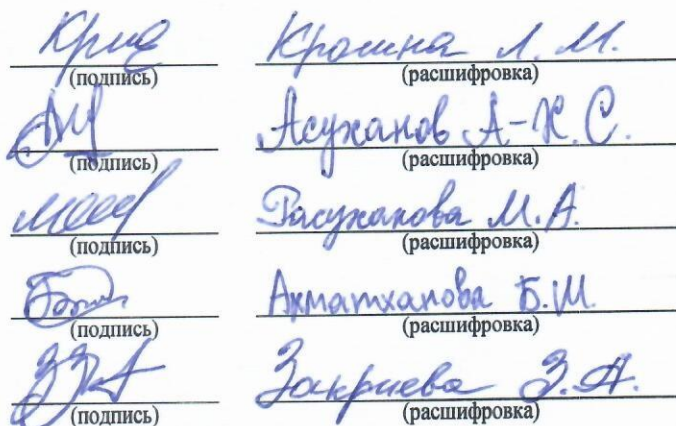 Крошина Л. М.
(подпись) (расшифровка)
Асуханов А-Х. С.
(подпись) (расшифровка)
Расуханова М. А.
(подпись) (расшифровка)
Ахматханова Б. М.
(подпись) (расшифровка)
Закриева З. А.
(подпись) (расшифровка)